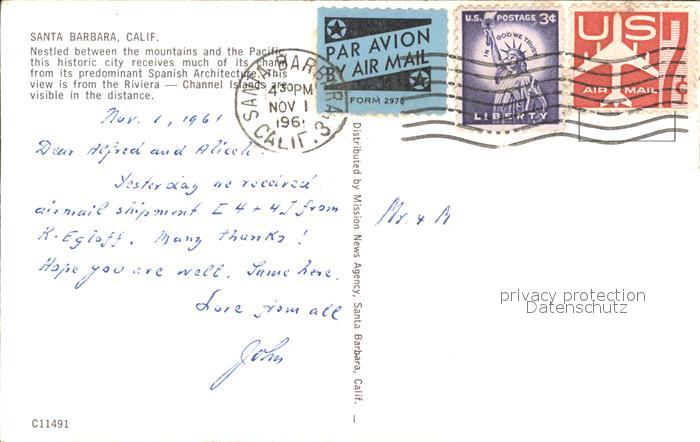 SANTA BARBARA, CALIF.
Nestled between the mountains and the Pacific,
this historic city receives much of its charm
from its predominant Spanish Architecture. This
view is from the Riviera — Channel Islands are
visible in the distance.
PAR AVION
BY AIR MAIL
FORM 2978
U.S. POSTAGE 3¢
IN GOD WE TRUST
LIBERTY
US
AIR MAIL
SANTA BARBARA
4 30 PM
NOV 1
1961
CALIF. 3
Nov. 1, 1961
Dear Alfred and
Yesterday we received
airmail shipment E 4 + 4 J from
K. Egloff. Many thanks!
Hope you are well. Same here.
Love from all
John
Distributed by Mission News Agency, Santa Barbara, Calif.
Mr. &
privacy protection
Datenschutz
C11491